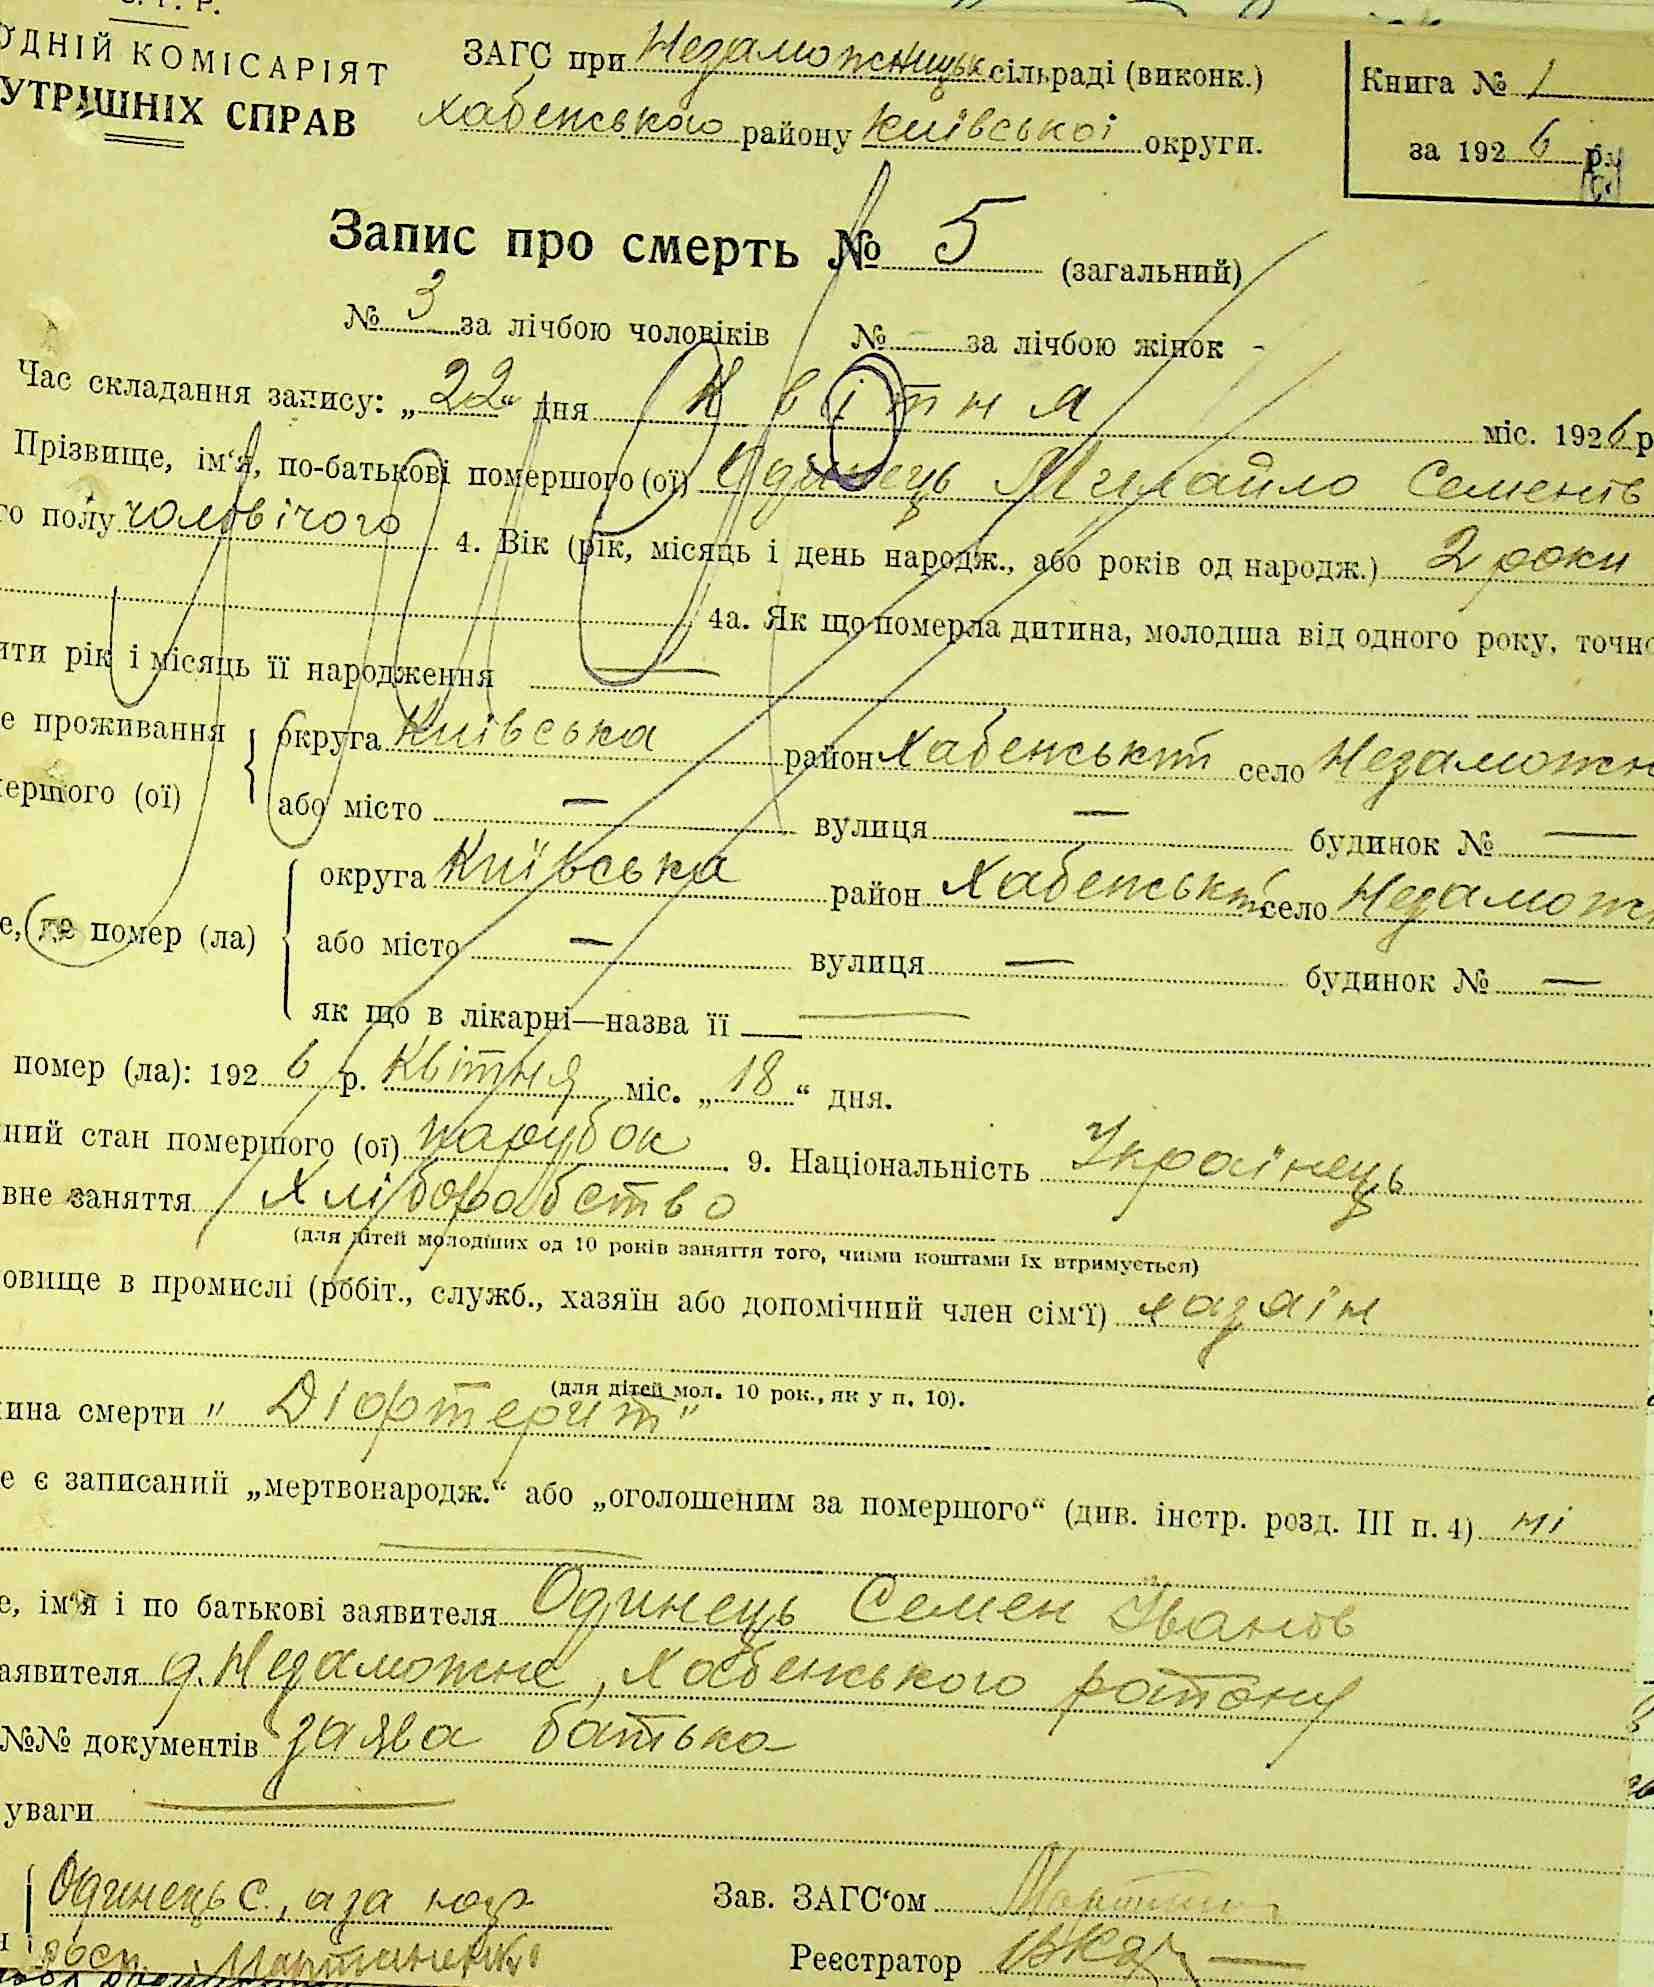 С. Р. Р.
ОДНІЙ КОМІСАРІЯТ
УТРІШНІХ СПРАВ
ЗАГС при Незаможницьк сільраді (виконк.)
Хабенського району Київської округи.
Книга № 1
за 1926 р.
Запис про смерть № 5 (загальний)
№ 3 за лічбою чоловіків № – за лічбою жінок -
Час складання запису: „22“ дня Квітня міс. 1926 р
Прізвище, ім'я, по-батькові помершого (ої) Одинець Михайло Семенів
го полу чоловічого 4. Вік (рік, місяць і день народж., або років од народж.) 2 роки
4а. Як що померла дитина, молодша від одного року, точно
ити рік і місяць її народження
е проживання округа Київська район Хабенський село Незаможн
мершого (ої) або місто — вулиця — будинок № —
е, де помер (ла) округа Київська район Хабенський село Незаможн
або місто — вулиця — будинок № —
як що в лікарні—назва її —
помер (ла): 1926 р. Квітня міс. „18“ дня.
ний стан помершого (ої) парубок 9. Національність Українець
вне заняття Хліборобство
(для дітей молодших од 10 років заняття того, чиїми коштами їх втримується)
овище в промислі (робіт., служб., хазяїн або допомічний член сім'ї) хазяїн
(для дітей мол. 10 рок., як у п. 10).
ина смерти "Діфтерит"
е є записаний „мертвонародж.“ або „оголошеним за помершого“ (див. інстр. розд. III п. 4) ні
е, ім'я і по батькові заявителя Одинець Семен Іванов
аявителя д. Незаможне, Хабенського району
№№ документів заява батька
уваги
Одинець С., а за
Зав. ЗАГС'ом
росп. Мартиненко
Реєстратор